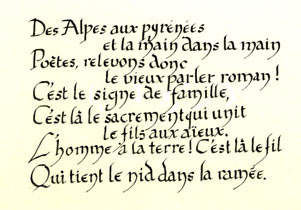 Des Alpes aux pyrénées
et la main dans la main
Poètes, relevons donc
le vieux parler roman !
C'est le signe de famille,
C'est là le sacrement qui unit
le fils aux aïeux.
L'homme à la terre ! C'est là le fil
Qui tient le nid dans la ramée.